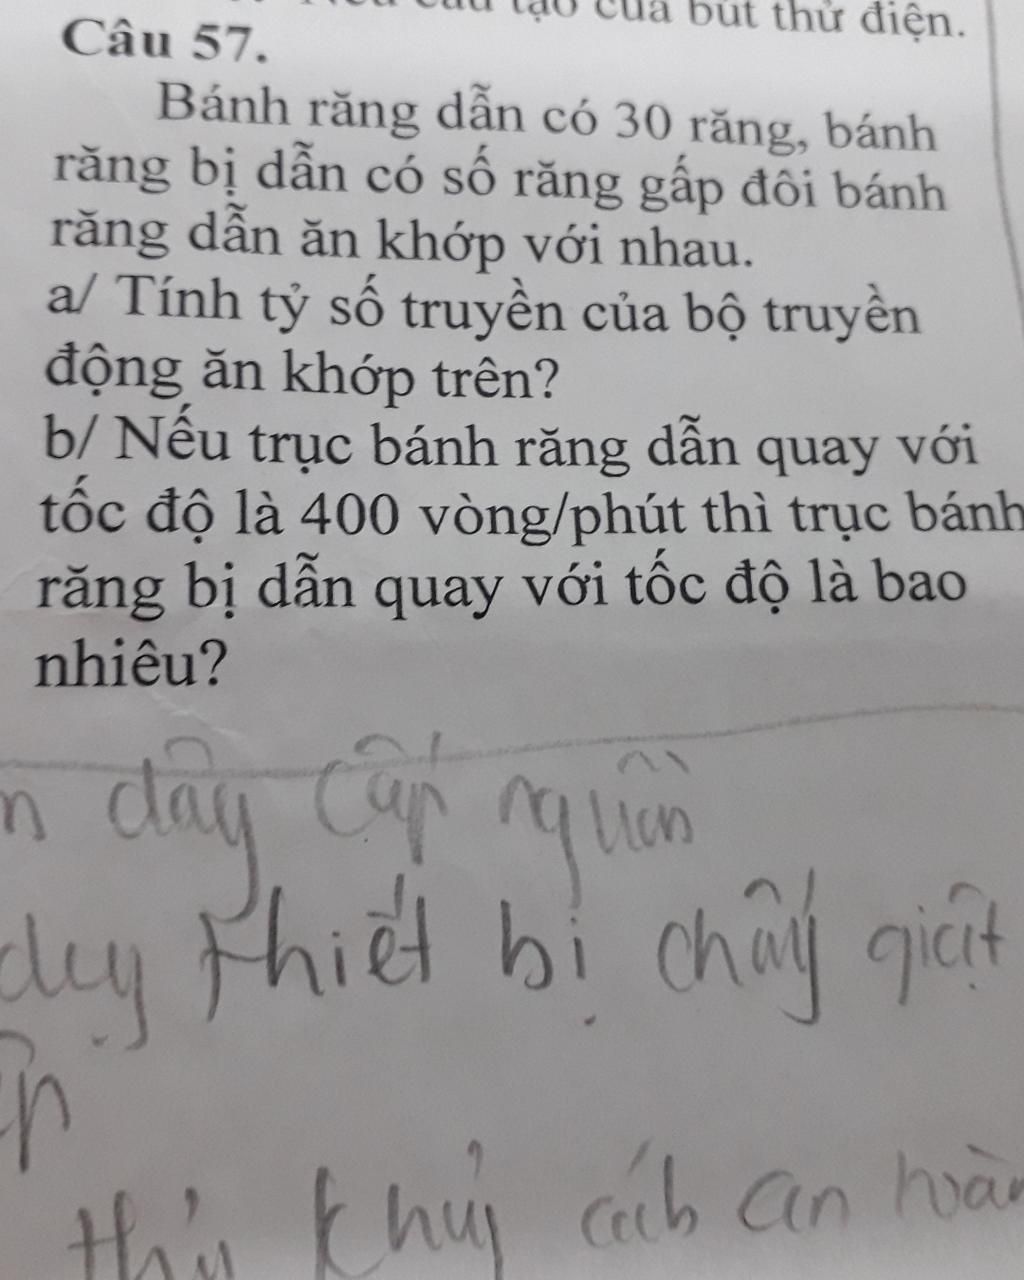 tạo của bút thử điện.
Câu 57.
Bánh răng dẫn có 30 răng, bánh
răng bị dẫn có số răng gấp đôi bánh
răng dẫn ăn khớp với nhau.
a/ Tính tỷ số truyền của bộ truyền
động ăn khớp trên?
b/ Nếu trục bánh răng dẫn quay với
tốc độ là 400 vòng/phút thì trục bánh
răng bị dẫn quay với tốc độ là bao
nhiêu?
dây cấp nguồn
thiết bị chấy giật
khủy cách an hoàn